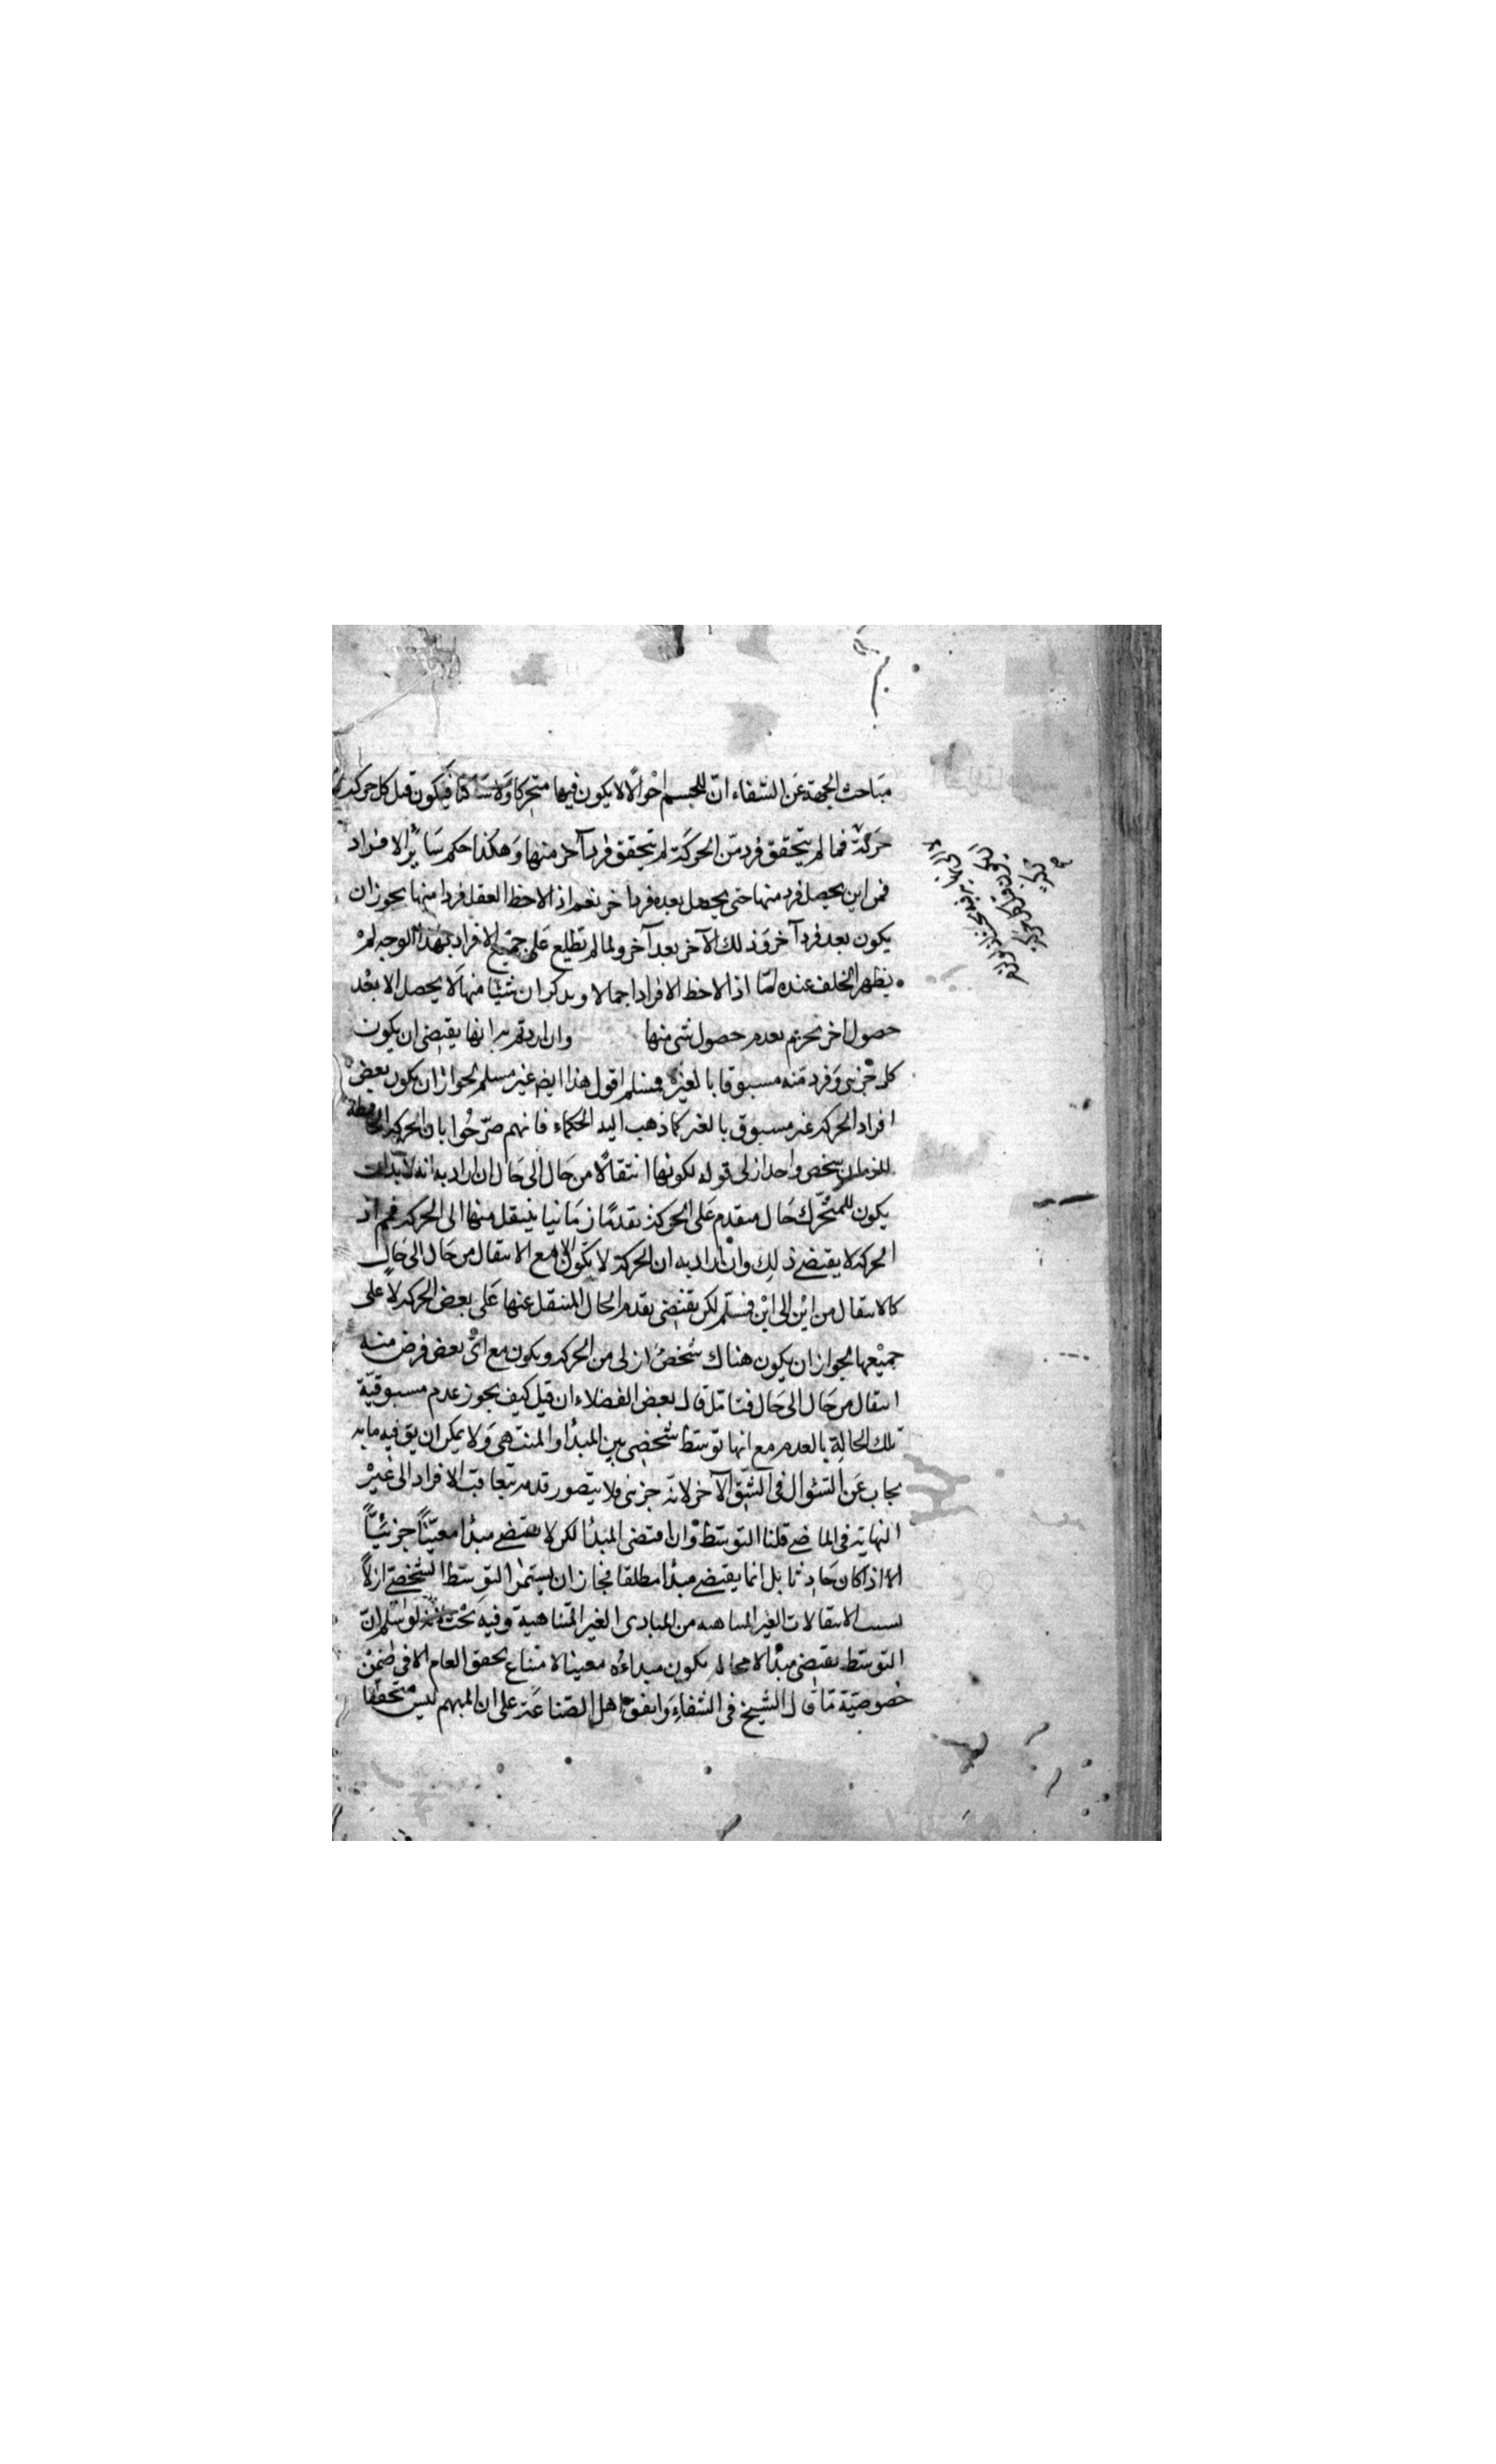 مباحث الجهة عن الشفاء ان للجسم احوالا لا يكون فيها متحركا ولا ساكنا فيكون قبل كل حركة
حركة فما لم يتحقق فرد من الحركة لم يتحقق فردا آخر منها وهكذا حكم سائر الافراد
فمن اين يحصل فرد منها حتى يحصل بعده فردا خر نعم اذ الاحظ العقل فردا منها يجوز ان
يكون بعد فردا آخر وذلك الآخر بعد آخر ولما لم تطلع على جميع الافراد بهذا الوجه لم
يظهر الخلف عنده امّا اذ الاحظ الافراد اجمالا ويدكر ان شيئا منها لا يحصل الا بعد
حصول اخر يحزم بعدم حصول شئ منها وان اردتم به انها يقتضى ان يكون
كل جزئى وفرد منه مسبوقا بالغير فمسلم اقول هذا ايض غير مسلم لجواز ان يكون بعض
افراد الحركة غير مسبوق بالغير كما ذهب اليه الحكماء فانهم صرّحوا بان الحركة الحافظة
للزمان شخص واحد ازلى قوله لكونها انتقالا من حال الى حال ان اراد به انه لابد ان
يكون للمتحرك حال متقدم على الحركة تقدما زمانيا ينتقل منها الى الحركة فمم اذ
الحركة لا يقتضے ذلك وان اراد به ان الحركة لا يكون الا مع الانتقال من حال الى حال
كالانتقال من اين الى اين فمسلم لكن يقتضى تقدم الحال المنتقل عنها على بعض الحركة لا على
جميعها لجواز ان يكون هناك شخص ازلى من الحركة ويكون مع اى بعض فرض منه
انتقال من حال الى حال فتامّل قال بعض الفضلاء ان قيل كيف يجوز عدم مسبوقيّة
تلك الحالة بالعدم مع انها توسّط شخصى بين المبدأ والمنتهى ولا يمكن ان يق فيه ما به
يجاب عن السّؤال فى الشّق الآخر لانّه جزئى فلا يتصور قدمه بتعاقب الافراد الى غير
النهاية فى الماضے قلنا التوسّط وان اقتضى المبدأ لكن لا يقتضے مبدأ معيّناً جزئيّاً
الا اذا كان حادثا بل انما يقتضے مبدأ مطلقا فجاز ان يستمر التوسّط الشخصے ازلاً
بسبب الانتقالات الغير المتناهيه من المبادى الغير المتناهية وفيه بحث لانه لو سلم انّ
التوسّط يقتضى مبدأ لا محاله يكون مبداءه معينا لامتناع تحقق العام الا فى ضمن
خصوصيّة مّا قال الشيخ فى الشفاء واتفق اهل الصّناعة على ان المبهم ليس متحققا